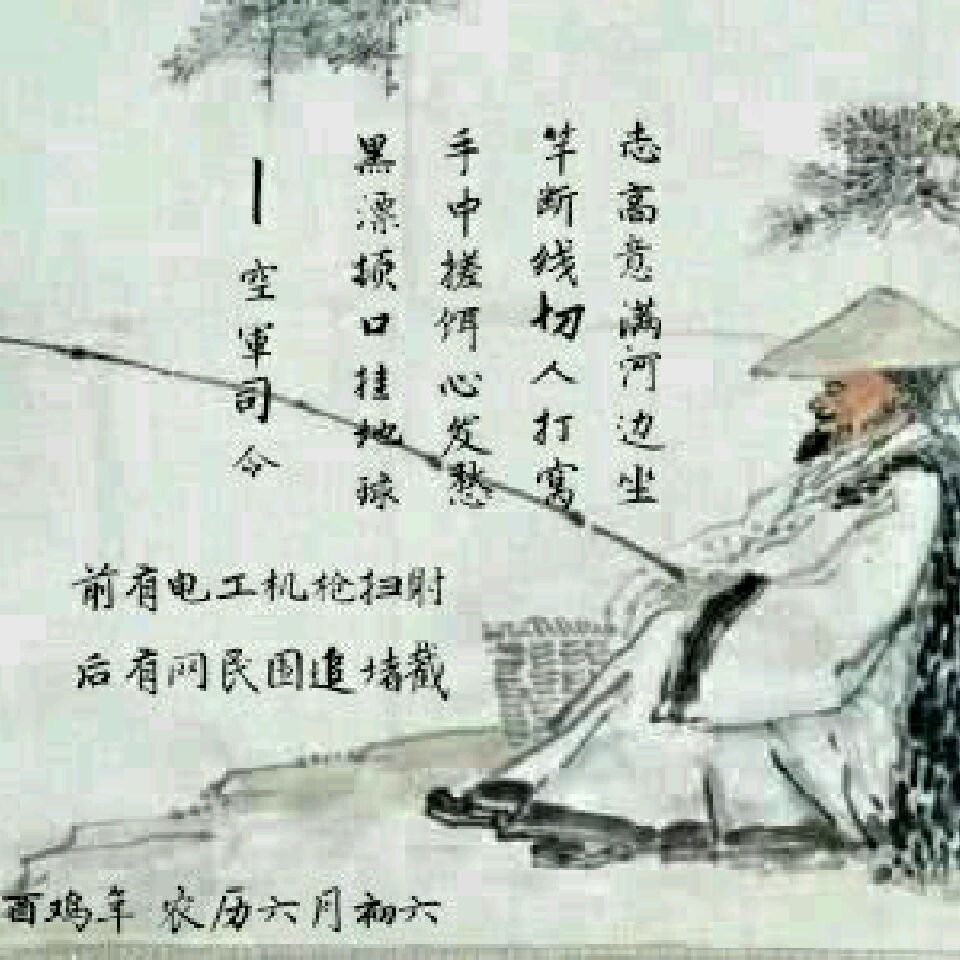 志高意满河边坐
竿断线切人打窝
手中搓饵心发愁
黑漂顿口挂地球
—空军司令
前有电工机枪扫射
后有网民围追堵截
酉鸡年 农历六月初六